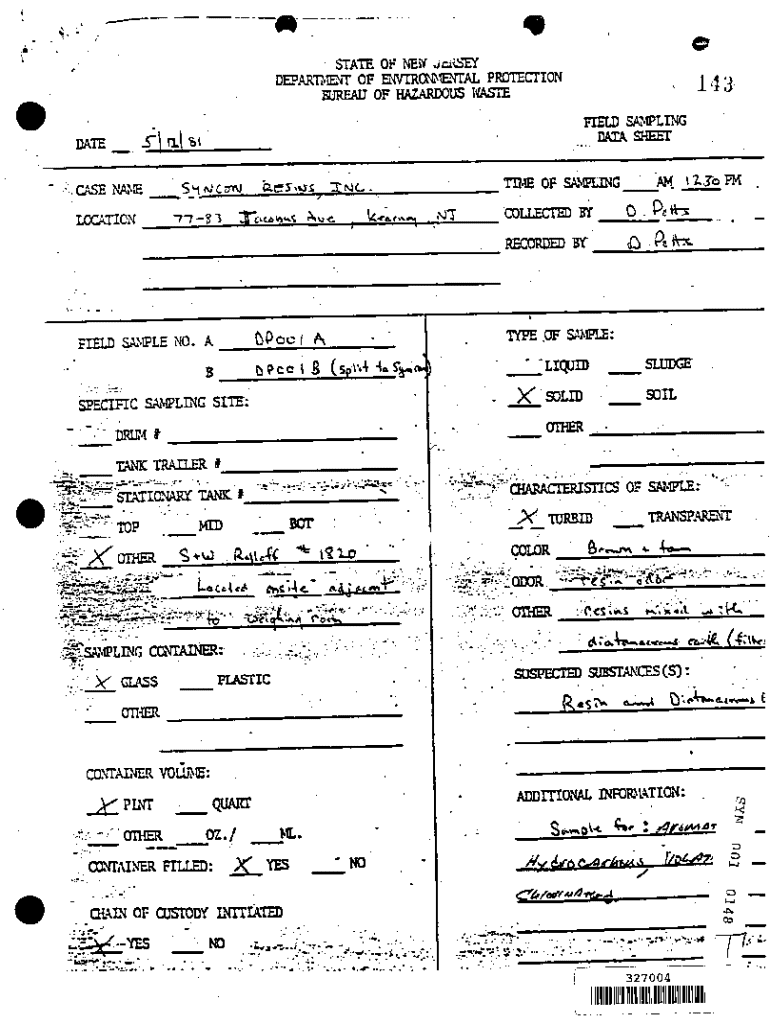 STATE OF NEW JERSEY
DEPARTMENT OF ENVIRONMENTAL PROTECTION
BUREAU OF HAZARDOUS WASTE
143
FIELD SAMPLING
DATA SHEET
DATE 5/12/81
CASE NAME SYNCON RESINS, INC.
TIME OF SAMPLING AM 1230 PM
LOCATION 77-83 Jacobus Ave, Kearny NJ
COLLECTED BY D. Petts
RECORDED BY D. Petts
FIELD SAMPLE NO. A DP001A
B DP001B (split to Syncon)
SPECIFIC SAMPLING SITE:
DRUM #
TANK TRAILER #
STATIONARY TANK #
TOP MID BOT
X OTHER S+W Rolloff # 1820
Located onsite adjacent
to weighing room
SAMPLING CONTAINER:
X GLASS PLASTIC
OTHER
CONTAINER VOLUME:
X PINT QUART
OTHER OZ./ ML.
CONTAINER FILLED: X YES NO
CHAIN OF CUSTODY INITIATED
X YES NO
TYPE OF SAMPLE:
LIQUID SLUDGE
X SOLID SOIL
OTHER
CHARACTERISTICS OF SAMPLE:
X TURBID TRANSPARENT
COLOR Brown + tan
ODOR resin odor
OTHER resins mixed with
diatomaceous earth (filter
SUSPECTED SUBSTANCES(S):
Resin and Diatomaceous E
ADDITIONAL INFORMATION:
Sample for: AROMAT
HYDROCARBONS, VOLAT
Chlorinated
SYN 001 0148
327004